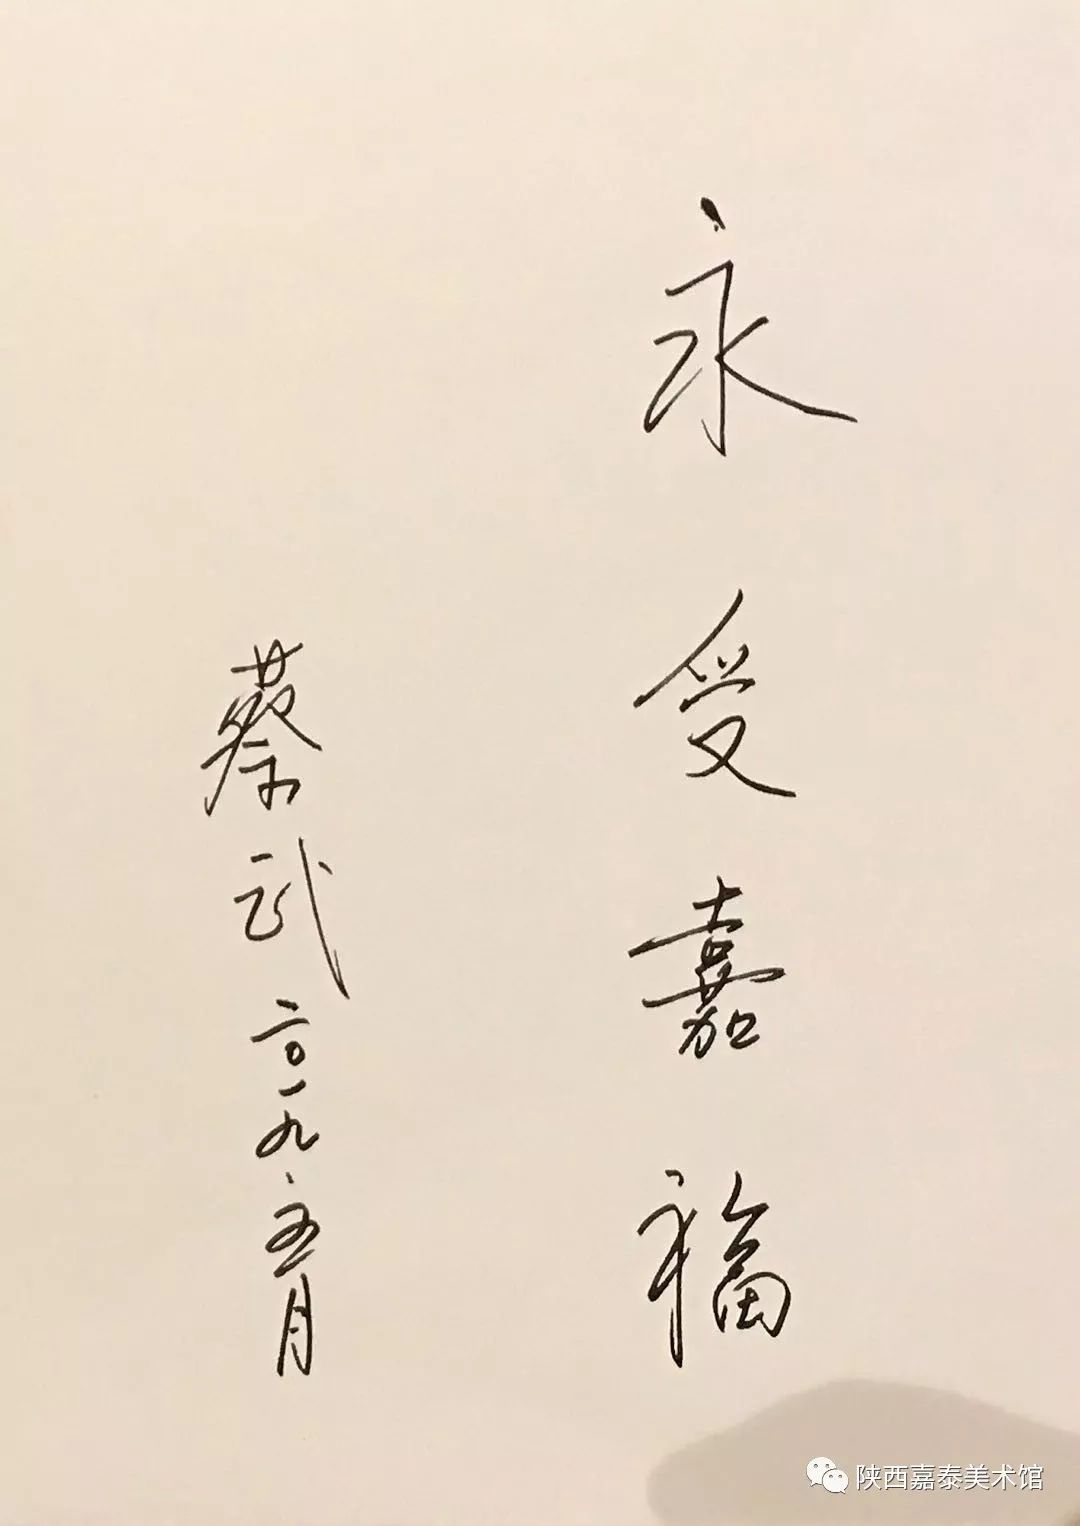 永受嘉福
蔡武 二〇一九.五月
陕西嘉泰美术馆